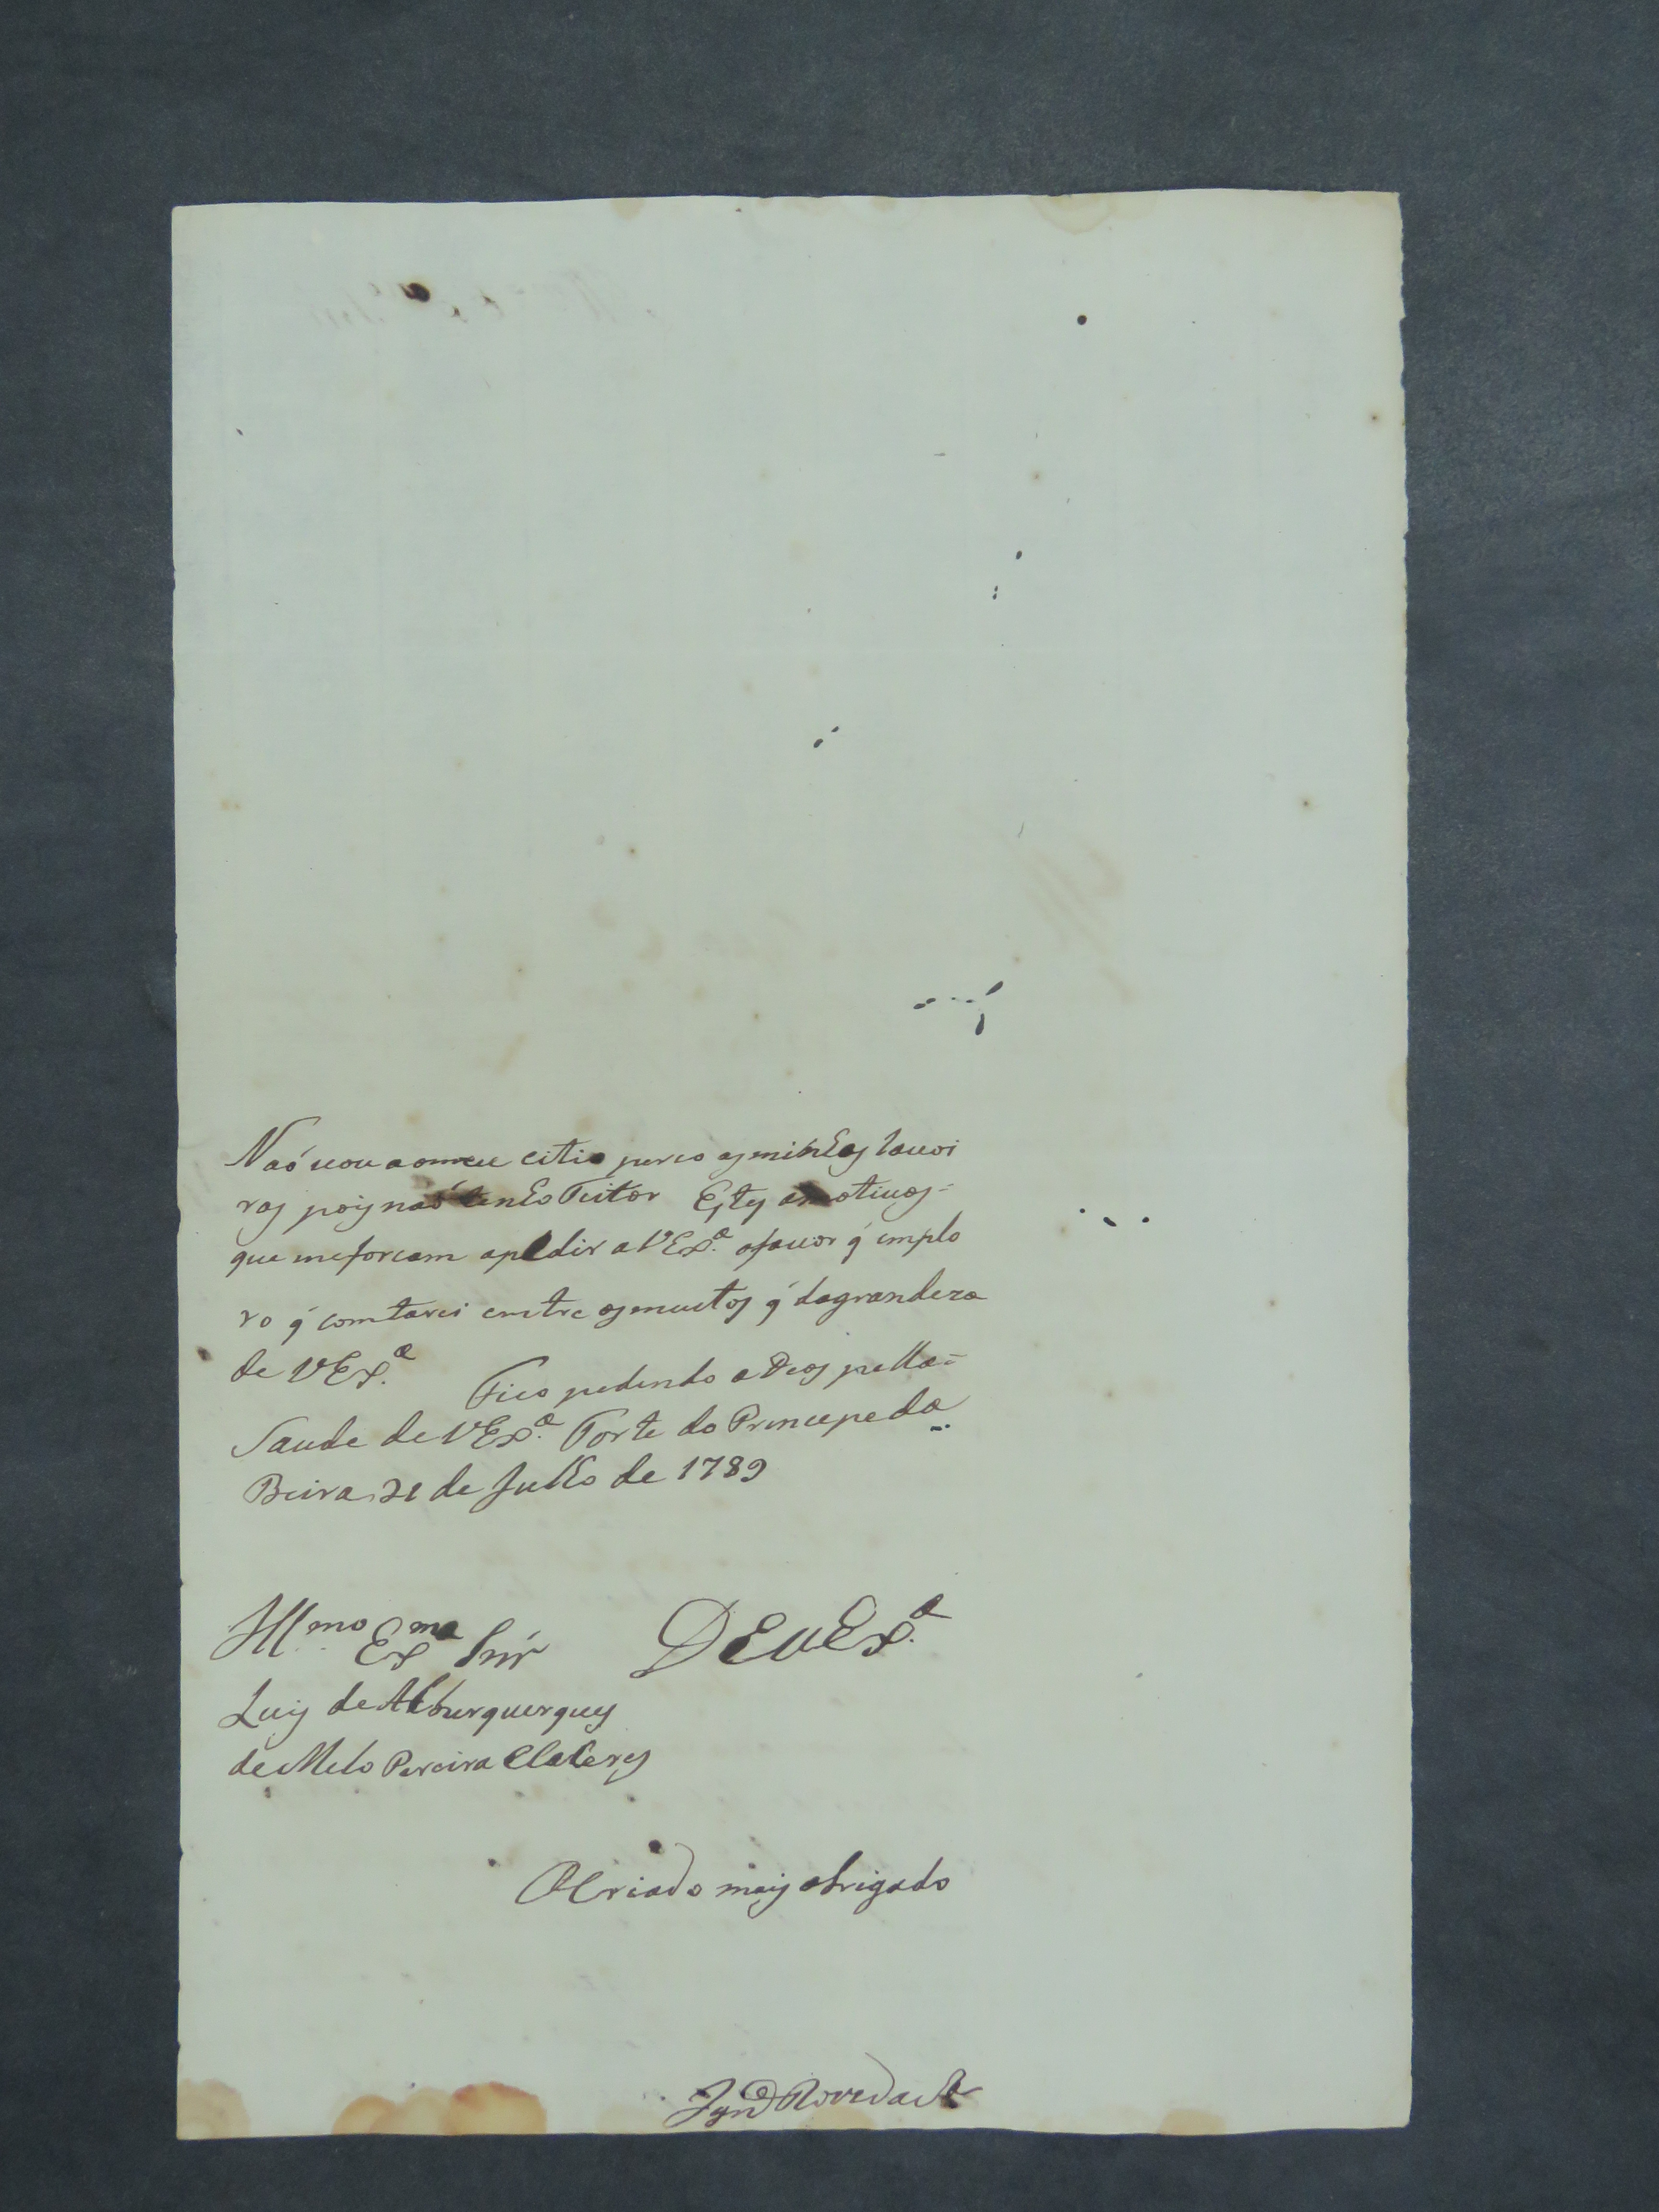 Naó uou aomeu citio perco as minhas lauoi
ras pois naó tenho Feitor Estes os motiuos=
que meforcam apedir a VEx.ª ofauor q́ implo
ro q́ comtarei emtre os muitos q́ dagrandeza
de VEx.ª Fico pedindo a Deos pella=
Saude de VEx.ª Forte do Princepe da
Beira 21 de Julho de 1789
Ill.mo Ex.mo Snr̃ DEVEx.ª
Luis de Alburquerques
de Melo Pereira eCaseres
OCriado mais obrigado